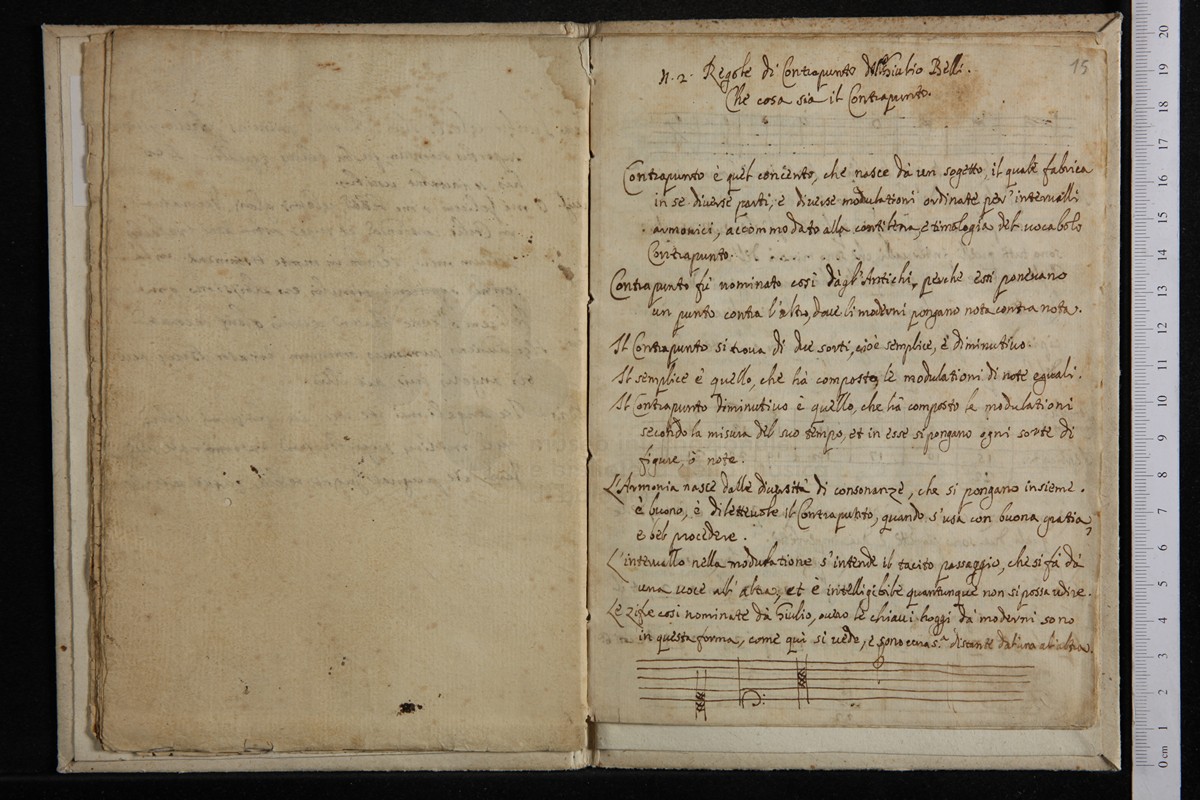 15
N. 2. Regole di Contrapunto di Giulio Belli.
Che cosa sia il Contrapunto.
Contrapunto è quel concento, che nasce da un sogetto, il quale fabrica
in se diverse parti, è diverse modulationi ordinate per intervalli
armonici, accommodato alla cantilena, etimologia del vocabolo
Contrapunto.
Contrapunto fù nominato cosi dagl'Antichi, perche essi ponevano
un punto contra l'altro, dove li moderni pongano nota contra nota.
Il Contrapunto si trova di due sorti, cioè semplice, è diminutivo.
Il semplice è quello, che hà composte le modulationi di note eguali.
Il Contrapunto diminutivo è quello, che hà composto le modulationi
secondo la misura del suo tempo, et in esse si pongano ogni sorte di
figure, ò note.
L'Armonia nasce dalle diversità di consonanze, che si pongano insieme.
è buono, è dilettevole il Contrapunto, quando s'usa con buona gratia,
e bel procedere.
L'intervallo nella modulatione s'intende il tacito passaggio, che si fà dà
una voce all'altra, et è intelligibile quantunque non si possa udire.
Le zife cosi nominate dà Giulio, overo le chiavi hoggi dà moderni sono
in questa forma, come quì si vede, è sono una 5.ª distante dall'una all'altra.
0 cm 1 2 3 4 5 6 7 8 9 10 11 12 13 14 15 16 17 18 19 20